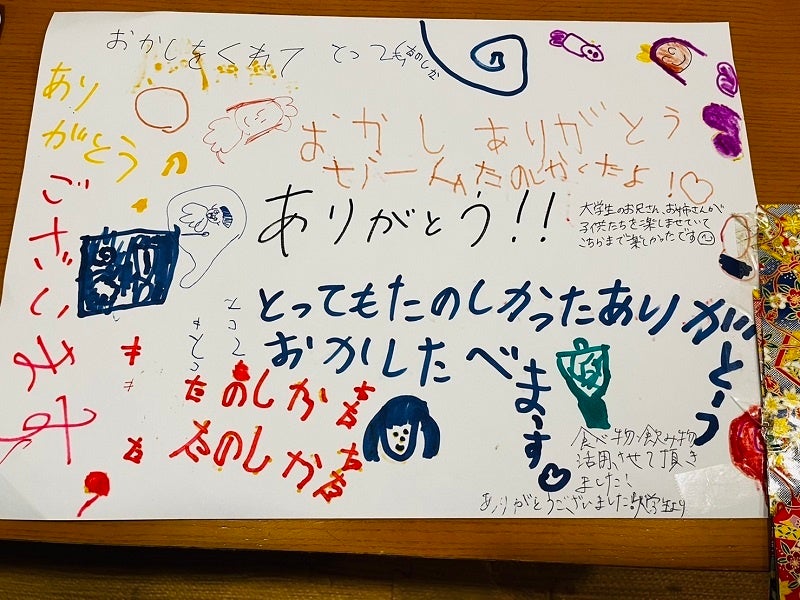 おかしをくれて とってもたのしか
ありがとう
ございます
おかしありがとう
ぜーんいんたのしかったよ!♡
ありがとう!!
大学生のお兄さん、お姉さんが
子供たちを楽しませていて
こちらまで楽しかったです
とってもたのしかったありがとう
おかしたべまーす♡
とっても
たのしかった
も
たのしかった
食べ物・飲み物
活用させて頂き
ました!
ありがとうございました!!大学生より